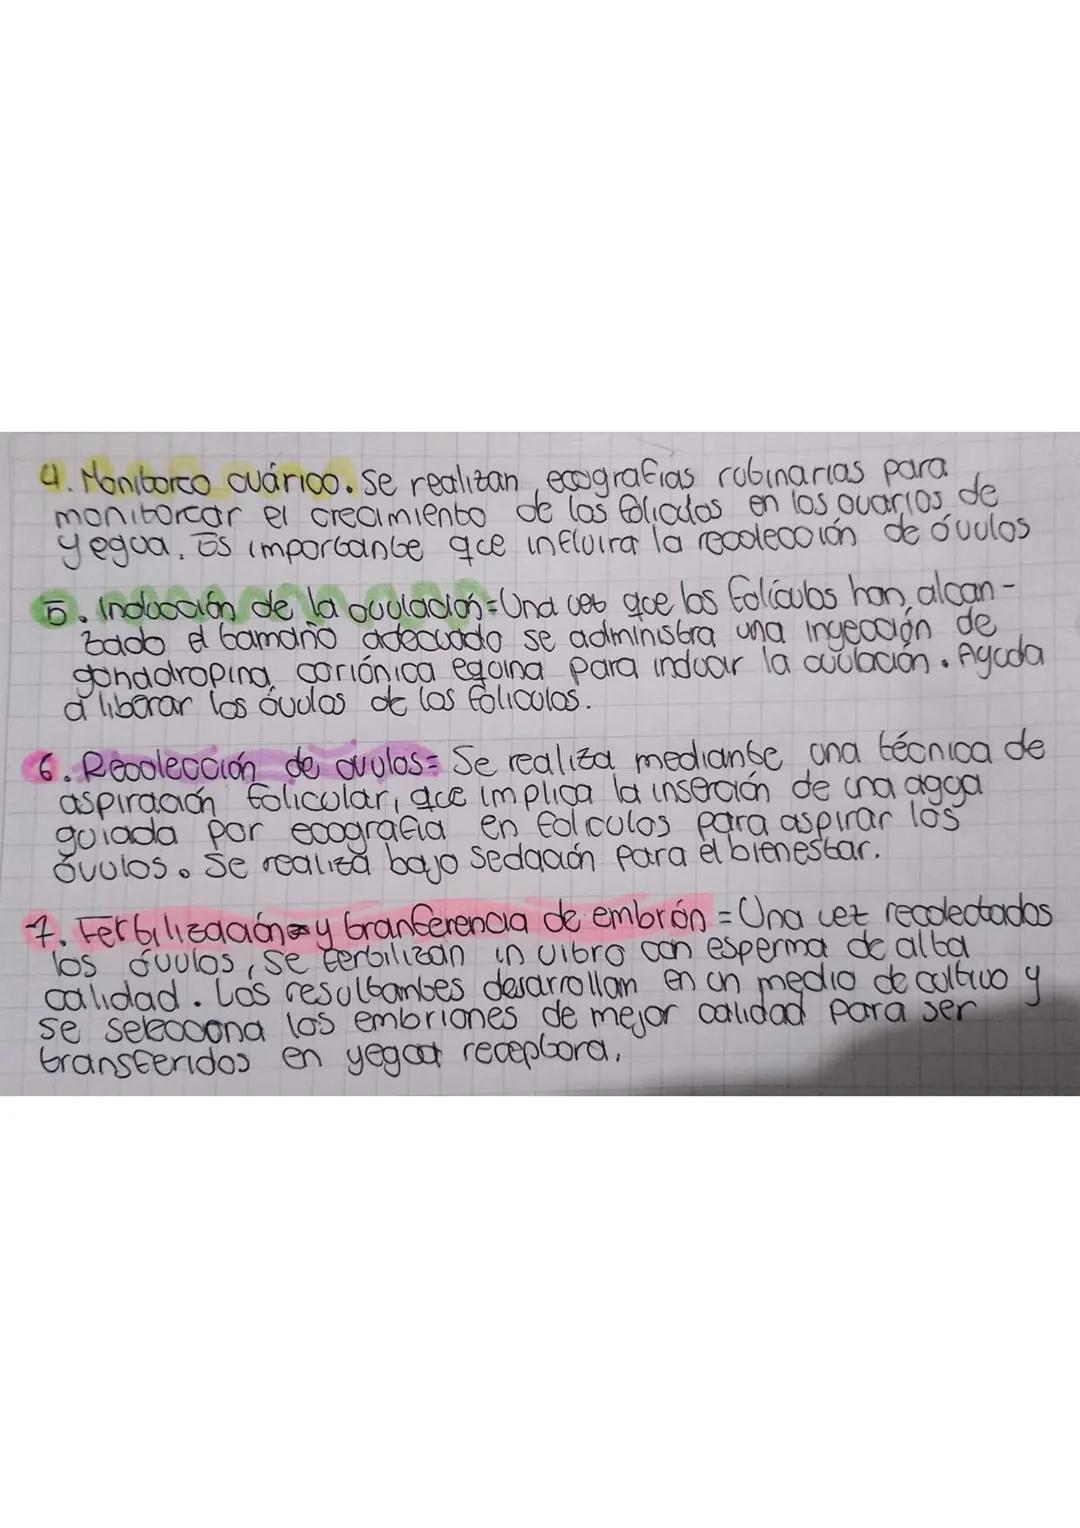 4. Monitoreo ovárico. Se realizan ecografias rutinarias para
monitorear el crecimiento de los foliculos en los ovarios de
yegua. Es importante que influira la recolección de óvulos
5. Inducción de la ovulación=Una vez que los folículos han alcan-
zado el tamaño adecuado se administra una inyección de
gonadropina coriónica equina para inducir la ovulación. Ayuda
a liberar los óvulos de los foliculos.
6. Recolección de ovulos= Se realiza mediante una técnica de
aspiración folicular, que implica la inserción de una aguja
guiada por ecografia en foliculos para aspirar los
óvulos. Se realiza bajo sedación para el bienestar.
7. Fertilización y tranferencia de embrón = Una vez recolectados
los óvulos, se fertilizan in vitro con esperma de alta
calidad. Los resultantes desarrollan en un medio de cultivo y
se selecciona los embriones de mejor calidad para ser
transferidos en yegua receptora.